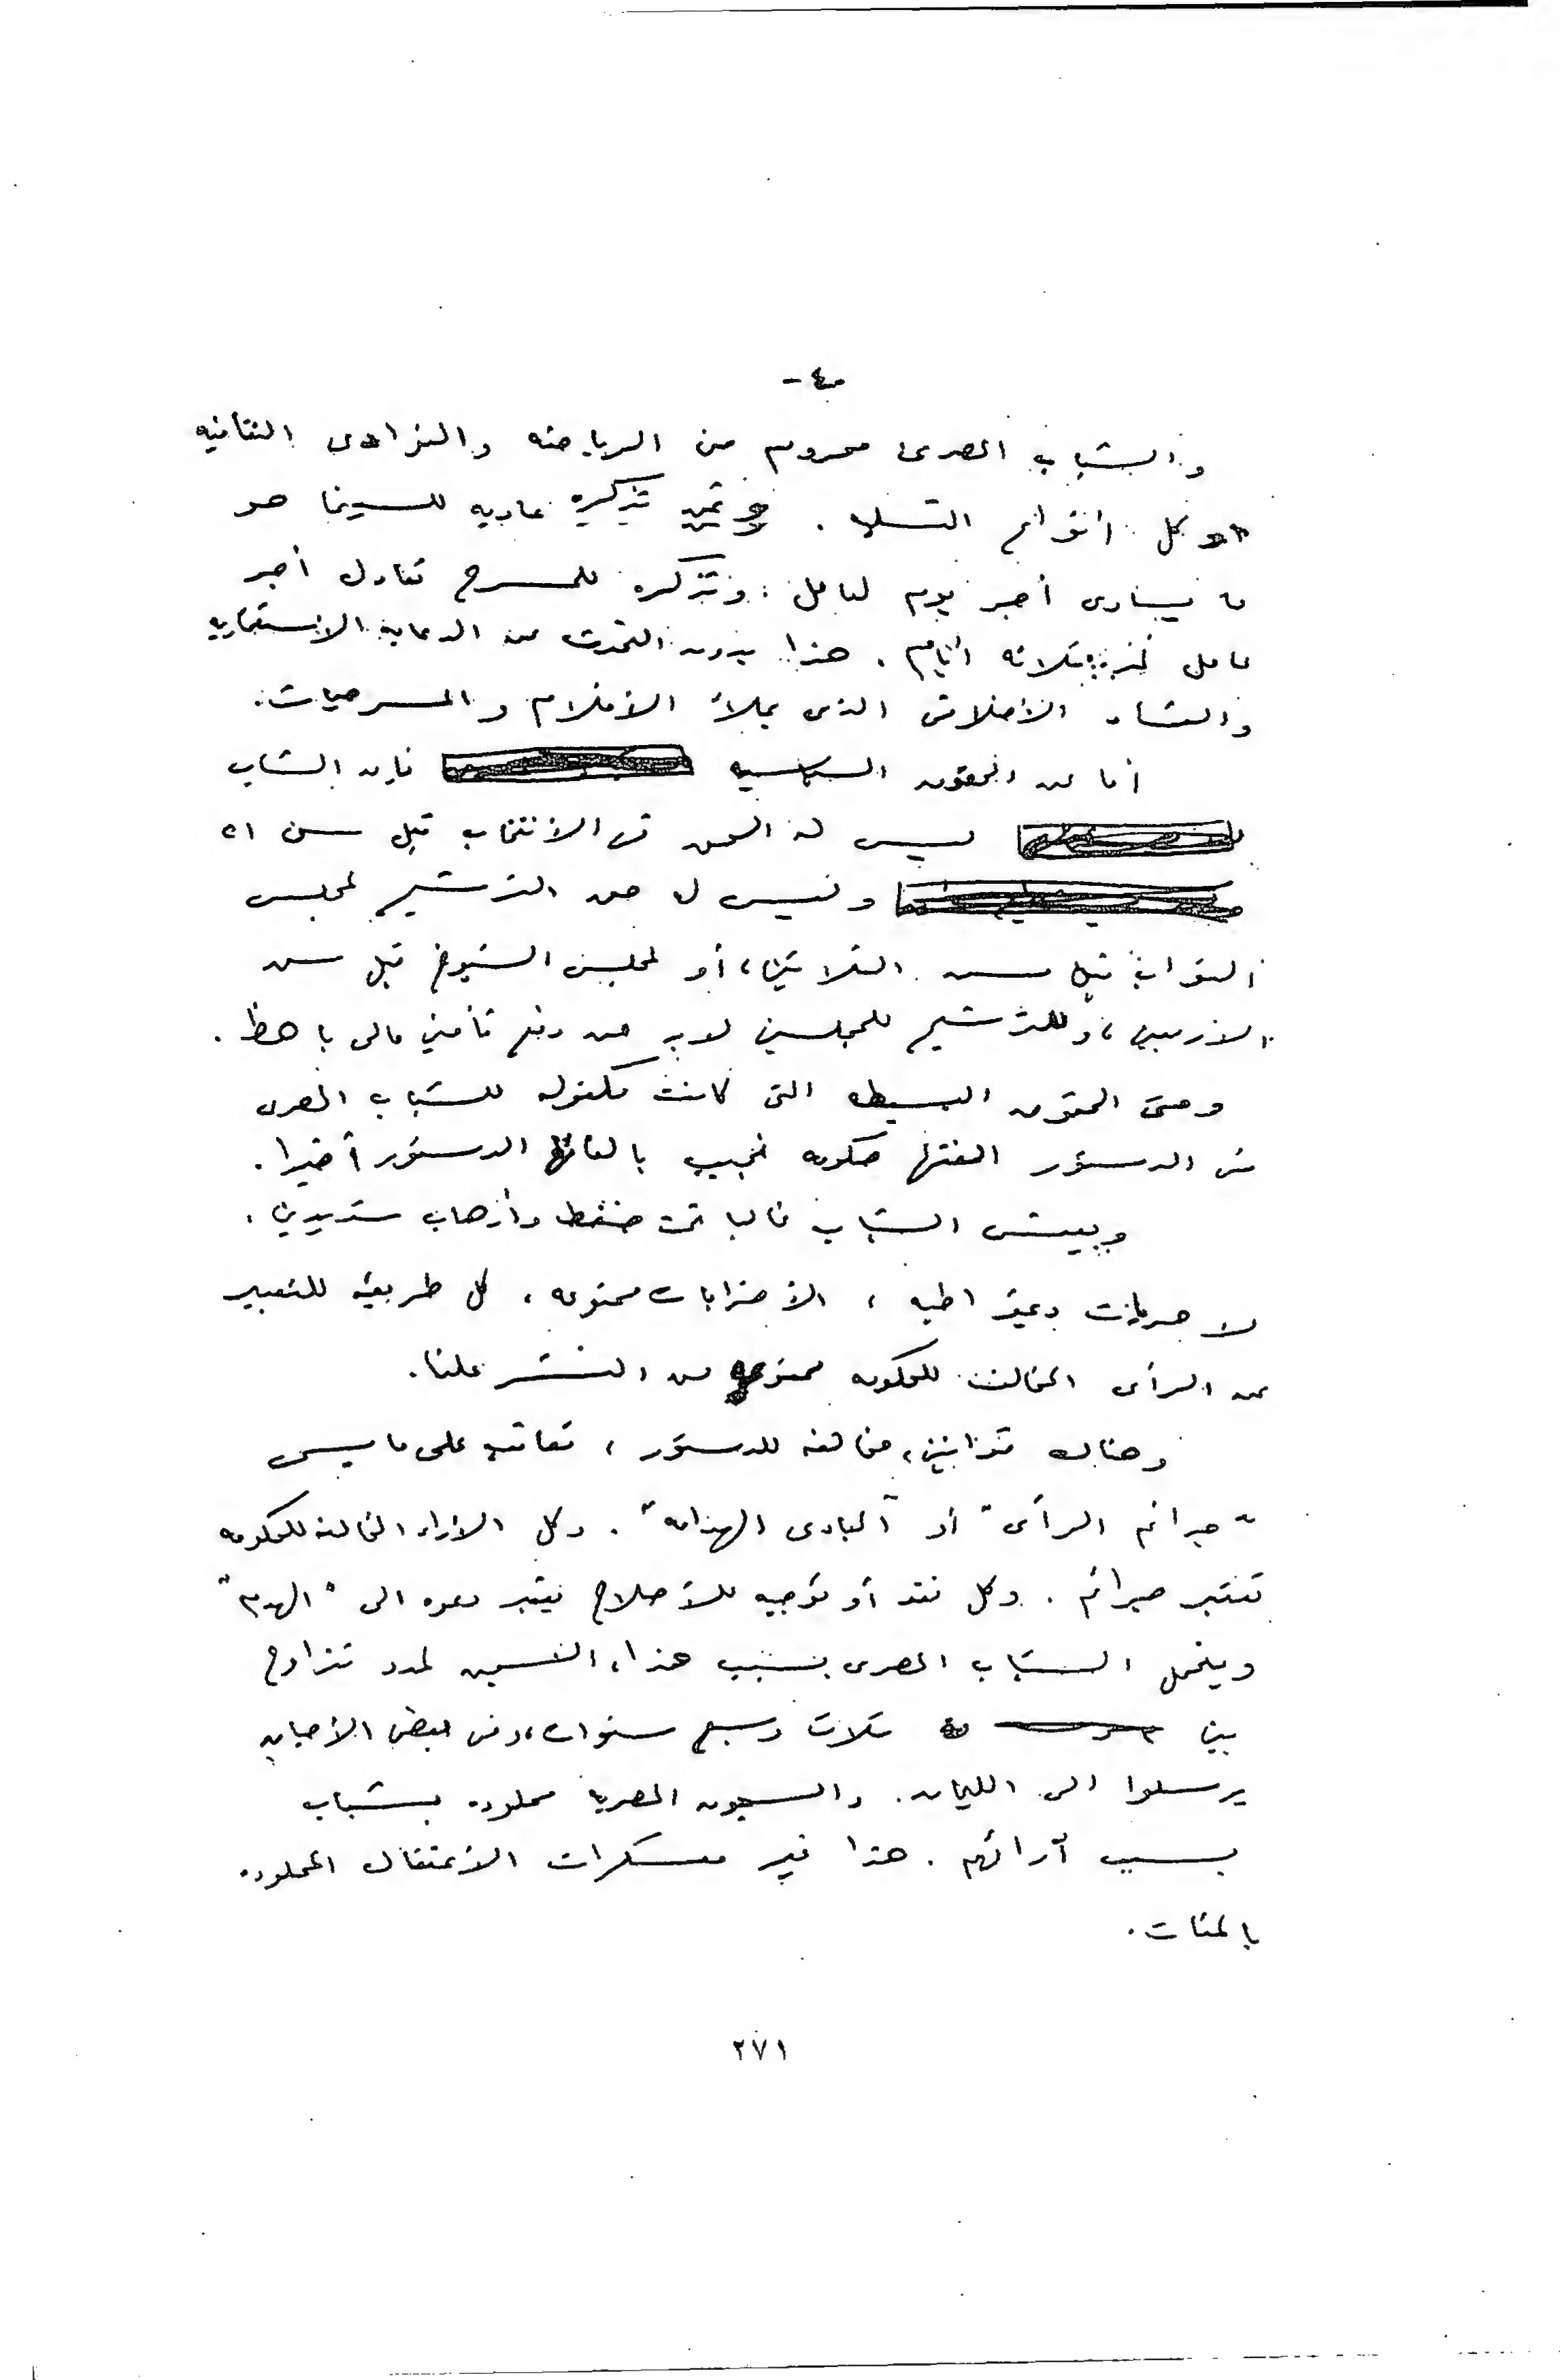 -٤-
والشباب المصرى محروم من الرياضه والنوادى الثقافيه
وكل أنواع التسليه . وثمن تذكره عاديه للسينما هو
ما يساوى أجر يوم لعامل . وتذكره للمسرح تعادل أجر
عامل لمده ثلاثه أيام . هذا بدون التحدث عن الدعايه الاستعماريه
والفساد الأخلاقى الذى يملأ الأفلام والمسرحيات .
أما عن الحقوق السياسيه فإن الشاب
ليس له الحق فى الأنتخاب قبل سن ٢١
وليس له حق الترشيح لمجلس
النواب قبل سن الثلاثين ، أو لمجلس الشيوخ قبل سن
الاربعين ، وللترشيح للمجلسين لابد من دفع تأمين مالى باهظ .
وحتى الحقوق البسيطه التى كانت مكفوله للشباب المصرى
فى الدستور الغتها حكومه نجيب بالغائها الدستور أخيرا .
ويعيش الشباب غالبا تحت ضغط وأرهاب شديدين .
لا حريات ديمقراطيه ، الأضرابات ممنوعه ، كل طريقه للتعبير
عن الرأى المخالف للحكومه ممنوعه من النشر علنا .
وهناك قوانين ، مخالفه للدستور ، تعاقب على ما يسمى
" جرائم الرأى " أو " المبادى الهدامه " . وكل الأراء المخالفه للحكومه
تعتبر جرائم . وكل نقد أو توجيه للأصلاح يعتبر دعوه الى " الهدم "
ويتحمل الشباب المصرى بسبب هذا ، السجن لمدد تتراوح
بين ثلاث وسبع سنوات ، وفى بعض الأحيان
يرسلوا الى الليمان . والسجون المصريه مملوءه بشباب
بسبب آرائهم . هذا غير معسكرات الأعتقال المملوءه
بالمئات .
٢٧١